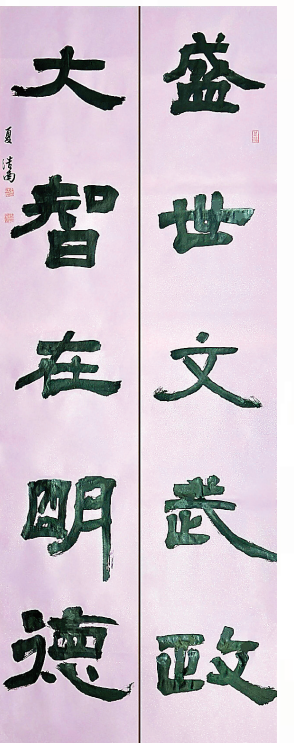 盛世文武政
大智在明德
夏浩南